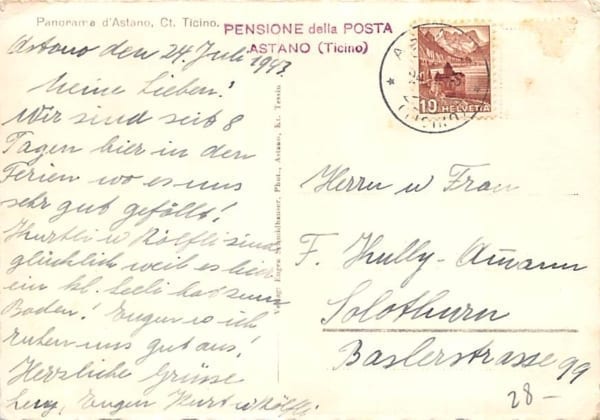 Panorama d'Astano, Ct. Ticino.
PENSIONE della POSTA
ASTANO (Ticino)
Astano den 24. Juli 1943.
Meine Lieben!
Wir sind seit 8
Tagen hier in den
Ferien wo es uns
sehr gut gefällt!
Kurtli u Rölfli sind
glücklich weil es hier
ein kl. Seeli hat zum
Baden! Eugen u ich
ruhen uns gut aus!
Herzliche Grüsse
Eugen Kurt u Rölfli
Verlag Eugen Schmidhauser, Phot., Astano, Kt. Tessin
10 HELVETIA
Herrn u Frau
F. Hully-Amann
Solothurn
Baslerstrasse 99
28-